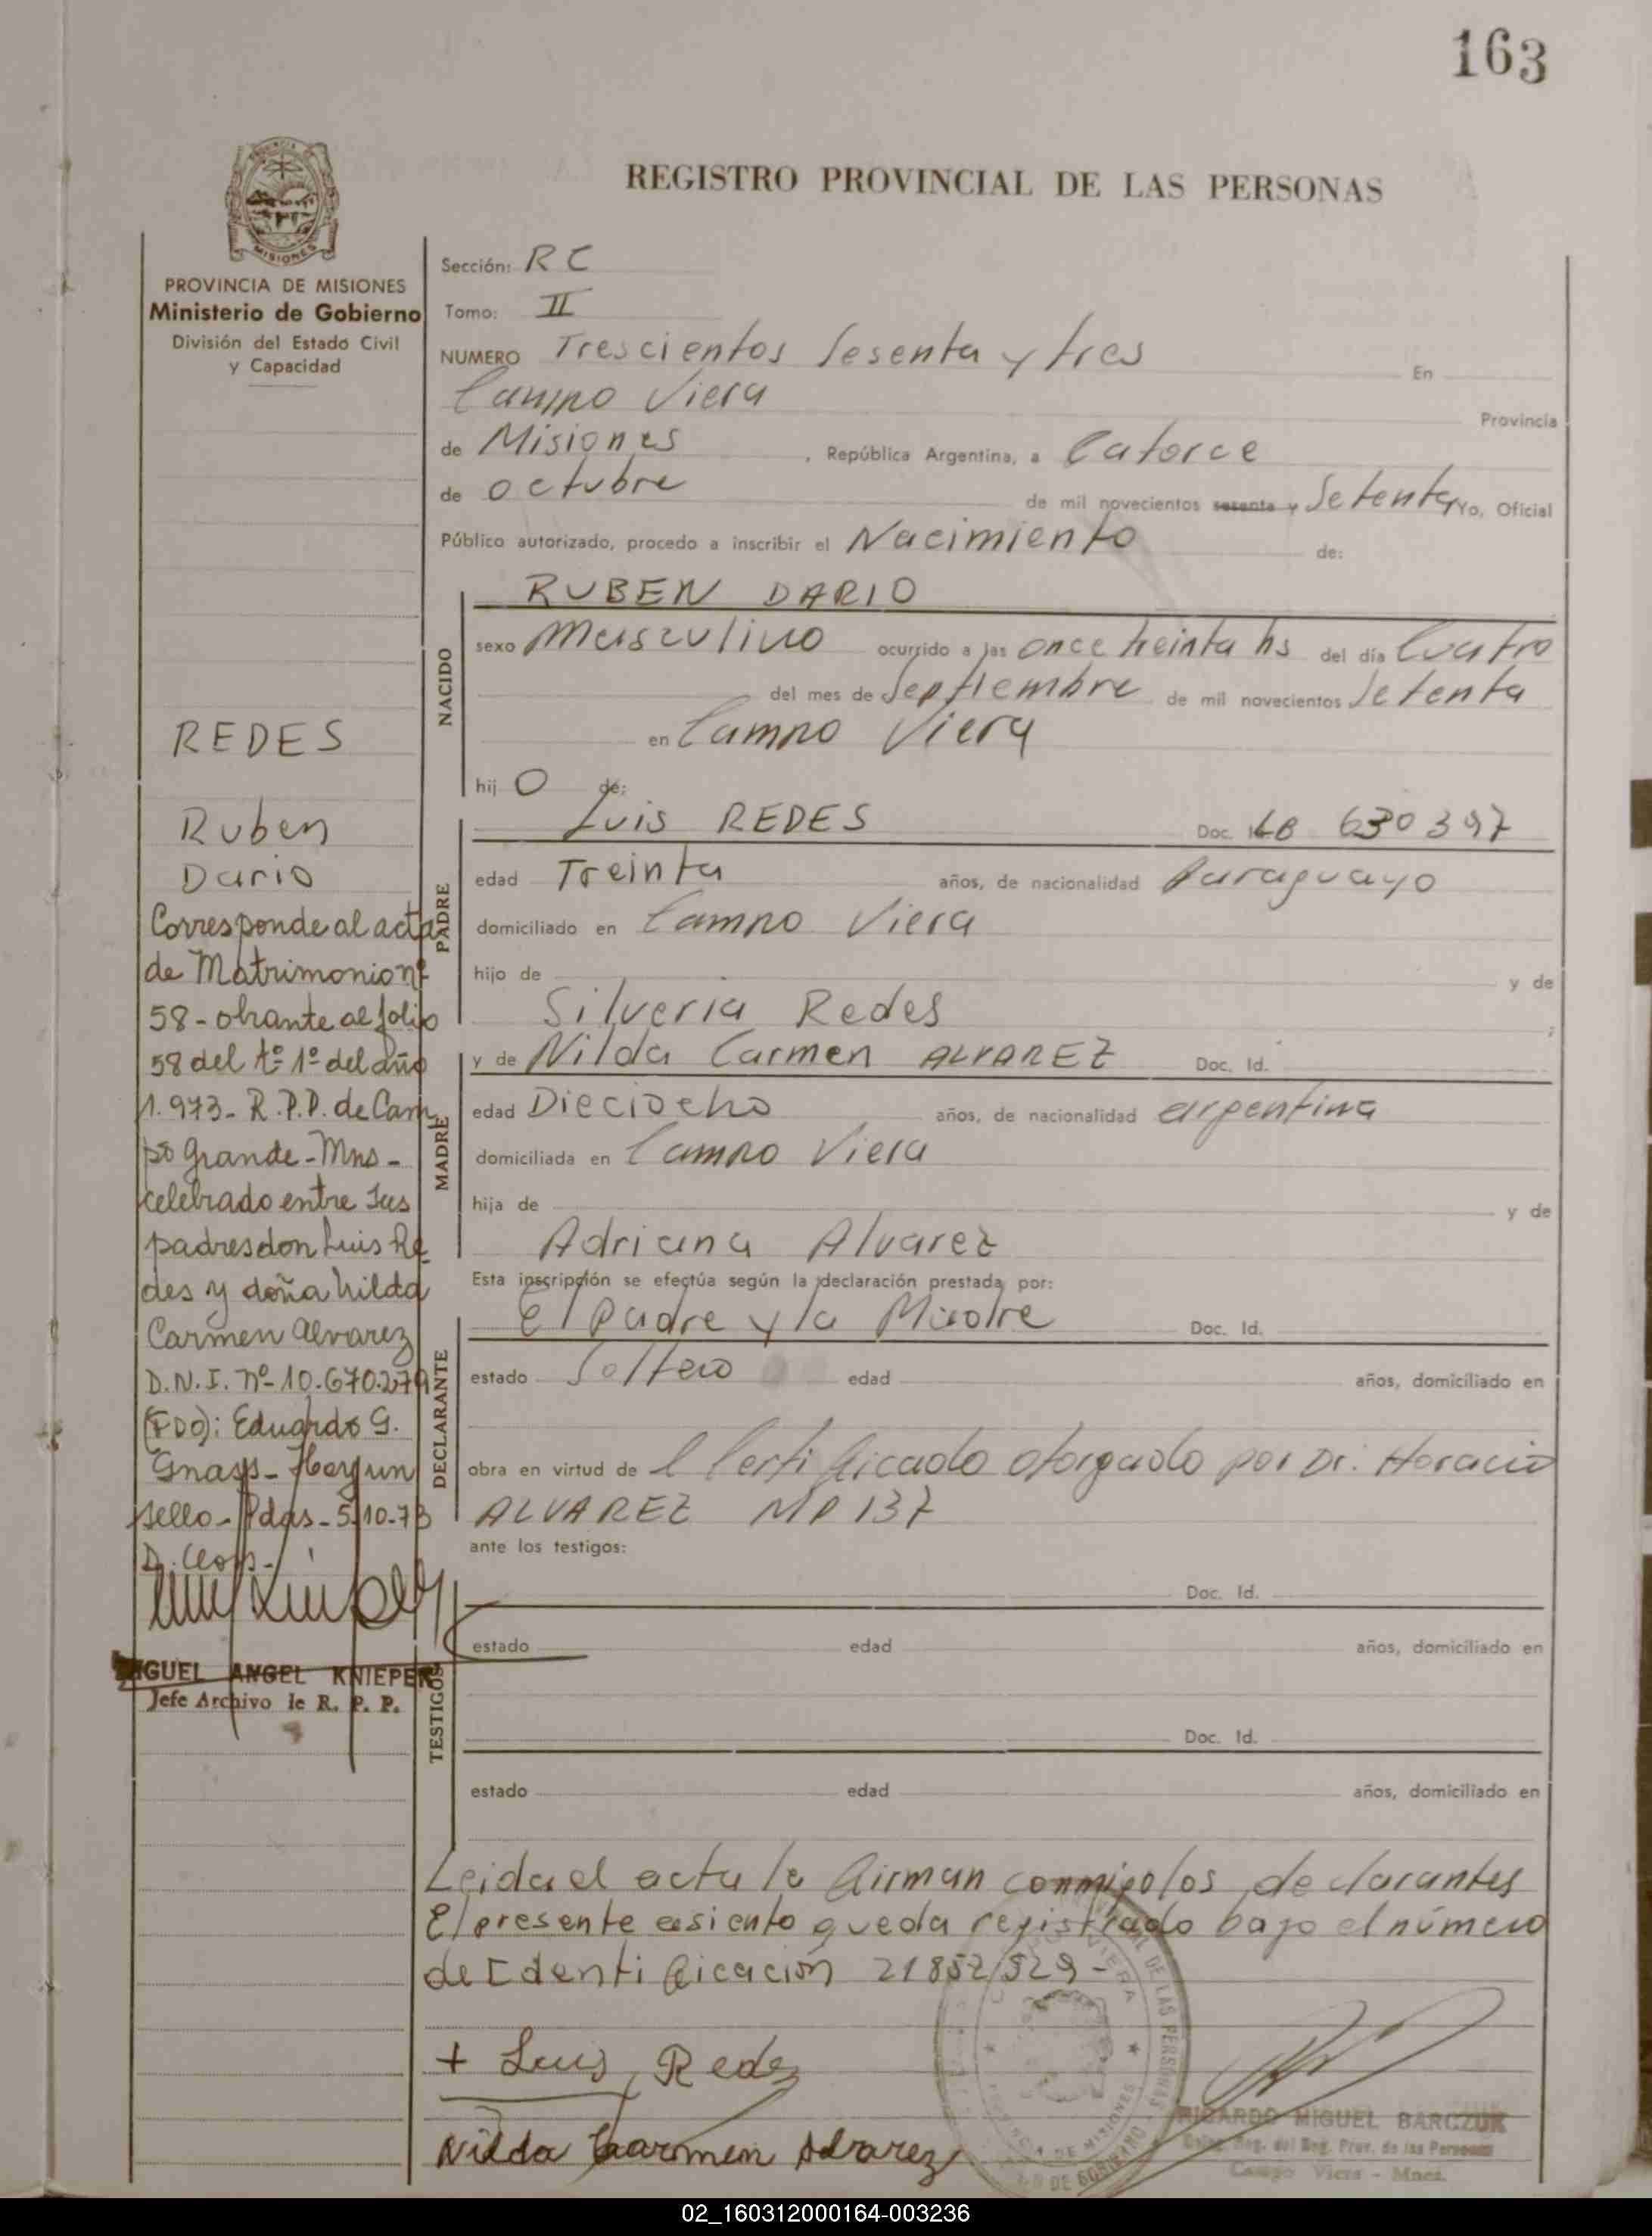 163
REGISTRO PROVINCIAL DE LAS PERSONAS
MISIONES
PROVINCIA DE MISIONES
Ministerio de Gobierno
División del Estado Civil
y Capacidad
Sección: RC
Tomo: II
NUMERO Trescientos Sesenta y tres En
Campo Viera Provincia
de Misiones, República Argentina, a Catorce
de octubre de mil novecientos sesenta y Setenta Yo, Oficial
Público autorizado, procedo a inscribir el Nacimiento de:
NACIDO
RUBEN DARIO
sexo Masculino ocurrido a las once treinta hs del día Cuatro
del mes de Septiembre de mil novecientos Setenta
en Campo Viera
hijo de:
PADRE
Luis REDES Doc. 630397
edad Treinta años, de nacionalidad Paraguayo
domiciliado en Campo Viera
hijo de y de
Silveria Redes
MADRE
y de Nilda Carmen ALVAREZ Doc. Id.
edad Dieciocho años, de nacionalidad argentina
domiciliada en Campo Viera
hija de y de
Adriana Alvarez
Esta inscripción se efectúa según la declaración prestada por:
DECLARANTE
El Padre y la Madre Doc. Id.
estado Soltero edad años, domiciliado en
obra en virtud de l Certificado otorgado por Dr. Horacio
ALVAREZ MP 137
ante los testigos:
TESTIGOS
Doc. Id.
estado edad años, domiciliado en
Doc. Id.
estado edad años, domiciliado en
Leida el acta la firman conmigo los declarantes
El presente asiento queda registrado bajo el número
de Identificación 21852529-
+ Luis Redes
Nilda Carmen Alvarez
RICARDO MIGUEL BARCZUK
Reg. del Reg. Prov. de las Personas
Campo Viera - Mnes.
REDES
Ruben
Dario
Corresponde al acta
de Matrimonio nº
58 - obrante al folio
58 del tº 1º del año
1.973 - R.P.P. de Cam
po Grande - Mns -
celebrado entre sus
padres don Luis Re
des y doña Nilda
Carmen Alvarez
D.N.I. nº 10.670.279
(FDO): Eduardo G.
Gnass - Hay un
sello - Pdas - 5-10-73
MIGUEL ANGEL KNIEPER
Jefe Archivo de R. P. P.
02_160312000164-003236